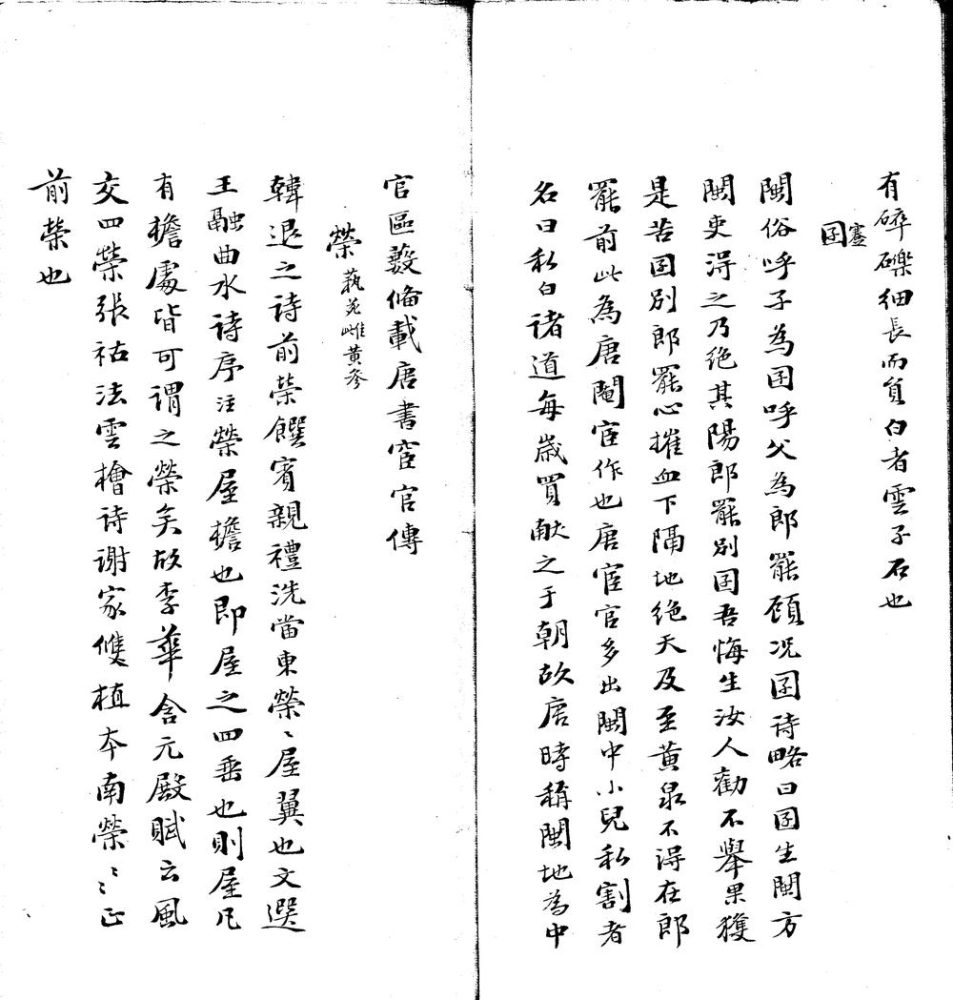 有碎礫細長而負白者雲子石也
囝 蹇
閩俗呼子為囝呼父為郎罷顧况囝诗略曰囝生閩方
閩吏淂之乃绝其陽郎罷别囝吾悔生汝人勸不舉果獲
是苦囝别郎罷心摧血下隔地绝天及至黄泉不淂在郎
罷前此為唐閹宦作也唐宦官多出閩中小兒私割者
名曰私白诸道每歲買献之于朝故唐時稱閩地為中
官區藪俻載唐書宦官傳
榮 蓺苑雌黄參
韓退之诗前榮饌賓親禮洗當東榮〻屋翼也文選
王融曲水诗序注榮屋檐也即屋之四垂也則屋凡
有檐處皆可謂之榮矣故李華含元殿賦云風
交四榮張祜法雲檜诗谢家雙植本南榮〻〻正
前榮也